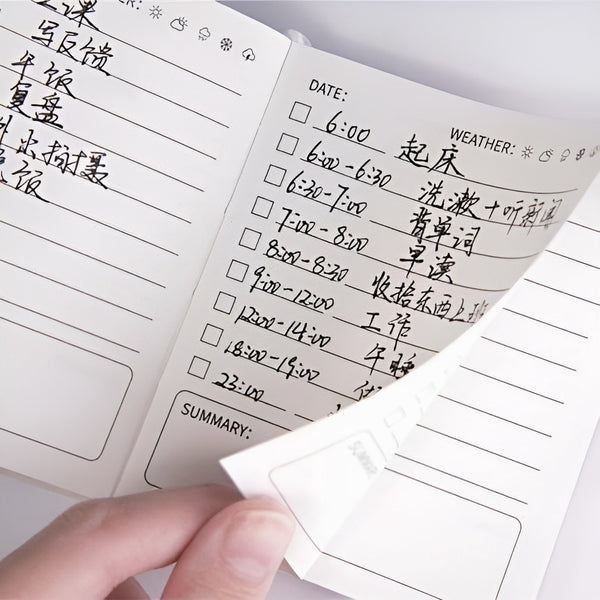 上课
写反馈
午饭
复盘
外出拍摄
饭
DATE:
WEATHER:
6:00 起床
6:00-6:30 洗漱+听新闻
6:30-7:00 背单词
7:00-8:00 早读
8:00-8:30 收拾东西上班
9:00-12:00 工作
12:00-14:00 午睡
18:00-19:00
23:00
SUMMARY: